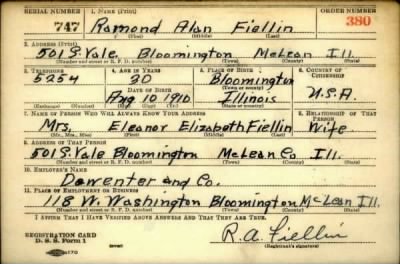 SERIAL NUMBER 1. NAME (Print) ORDER NUMBER
747 Ramond Alan Fiellin 380
(First) (Middle) (Last)
2. ADDRESS (Print)
501 S. Vale Bloomington McLean Ill.
(Number and street or R. F. D. number) (Town) (County) (State)
3. TELEPHONE 4. AGE IN YEARS 5. PLACE OF BIRTH 6. COUNTRY OF CITIZENSHIP
5254 30 Bloomington
DATE OF BIRTH (Town or county)
Aug 10 1910 Illinois U.S.A.
(Exchange) (Number) (Mo.) (Day) (Yr.) (State or country)
7. NAME OF PERSON WHO WILL ALWAYS KNOW YOUR ADDRESS 8. RELATIONSHIP OF THAT PERSON
Mrs. Eleanor Elizabeth Fiellin Wife
(Mr., Mrs., Miss) (First) (Middle) (Last)
9. ADDRESS OF THAT PERSON
501 S. Vale Bloomington McLean Co Ill.
(Number and street or R. F. D. number) (Town) (County) (State)
10. EMPLOYER'S NAME
and Co.
11. PLACE OF EMPLOYMENT OR BUSINESS
118 W. Washington Bloomington McLean Ill.
(Number and street or R. F. D. number) (Town) (County) (State)
I AFFIRM THAT I HAVE VERIFIED ABOVE ANSWERS AND THAT THEY ARE TRUE.
REGISTRATION CARD
D. S. S. Form 1 R.A. Fiellin
(Registrant's signature)